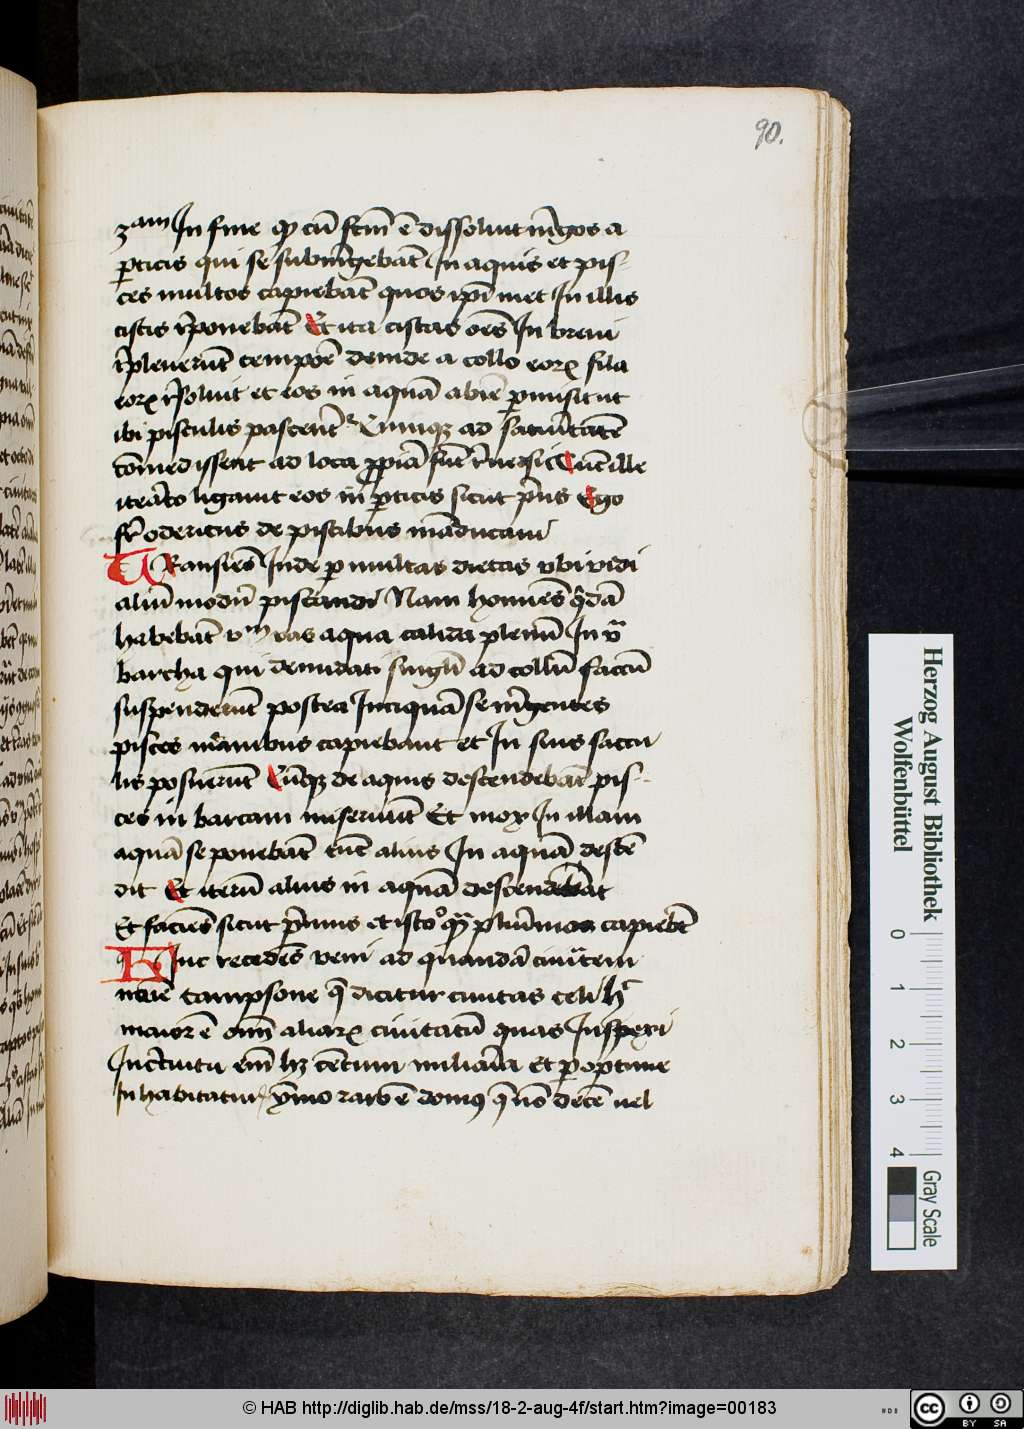 90.
zam In fine qͥ cū scīm ē dissoluit mͥgos a
ꝑticis qui se submͥgebāt In aquis et pis-
ces multos capiebāt quos ip̄i met In illis
cistis rͥponebāt Et ita cistas oēs In breui
Iͥpleuerūt tempoē deinde a collo eorꝝ fila
eorꝝ rͥsoluit et eos in aquā abire ꝑmisit ut
ibi pisculis pascerēt Cumqꝫ ad saturitatē
cōmedissent ad loca ꝓpia sūt rͥuersi Tūc ille
iterato ligauit eos in ꝑticis sicut pͥus Ego
fr̄ odericus de piscibus māducaui
TRansiens Inde ꝑ multas dietas vbi vidi
aliū modū piscandi Nam homines qͥdā
habebāt vas aqua calida plenū In
barcha qui denudati singuli ad collū saccū
suspenderūt postea In aquā se mͥgentes
pisces manibus capiebant et In suis saccu
lis posuerūt Cūqꝫ de aquis descendebāt pis-
ces in barcam miserūt Et mox In illam
aquā se ponebāt tūc alius In aquā descē
dit Et iterū alius in aquā descendebāt
Et faciēs sicut pͥmus et isto plurimos capiebāt
HInc recedēs veni ad quandā ciuitatem
noīe campsone qͥ dicitur ciuitas celi Hͨ
maior ē oīm aliarꝝ ciuitatū quas Inspexi
In circuitu eīm hꝫ cētum miliaria Et ꝑoptime
Inhabitatur ymo raro ē domꝰ qͥ nō decē uel
Herzog August Bibliothek
Wolfenbüttel
0 1 2 3 4
Gray Scale
© HAB http://diglib.hab.de/mss/18-2-aug-4f/start.htm?image=00183
cc BY SA